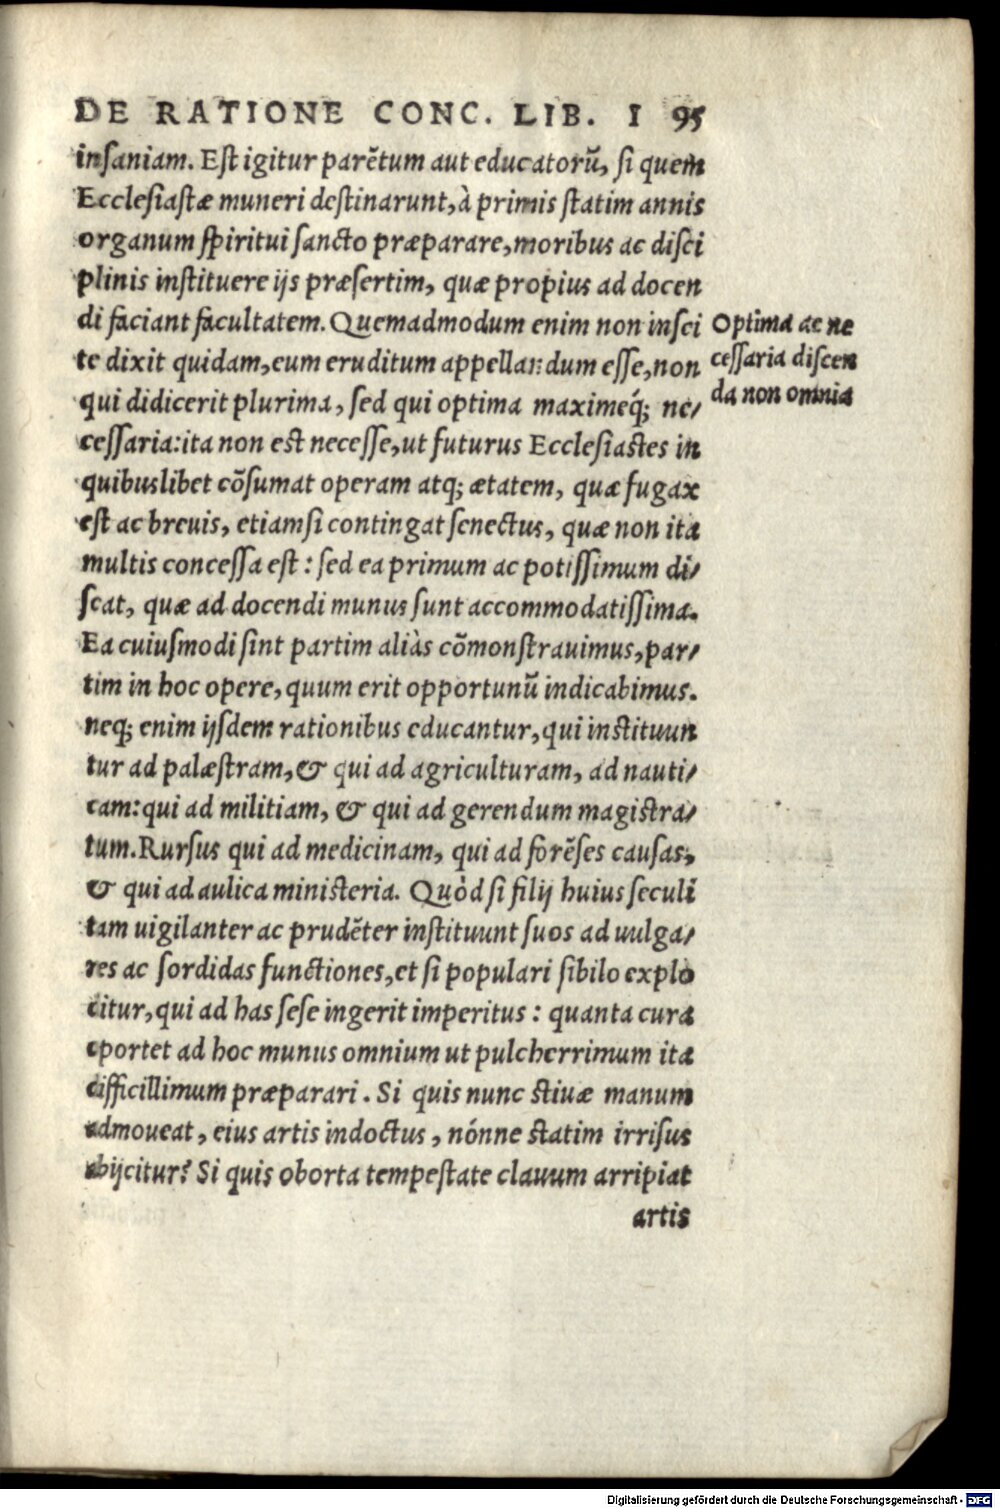 DE RATIONE CONC. LIB. I 95
insaniam. Est igitur parẽtum aut educatorũ, si quem
Ecclesiastæ muneri destinarunt, à primis statim annis
organum spiritui sancto præparare, moribus ac disci
plinis instituere ijs præsertim, quæ propius ad docen
di faciant facultatem. Quemadmodum enim non insci
te dixit quidam, eum eruditum appellandum esse, non
qui didicerit plurima, sed qui optima maximeq́; ne/
cessaria: ita non est necesse, ut futurus Ecclesiastes in
quibuslibet cõsumat operam atq; ætatem, quæ fugax
est ac brevis, etiamsi contingat senectus, quæ non ita
multis concessa est: sed ea primum ac potissimum di/
scat, quæ ad docendi munus sunt accommodatissima.
Ea cuiusmodi sint partim aliàs cõmonstrauimus, par/
tim in hoc opere, quum erit opportunũ indicabimus.
neq; enim ijsdem rationibus educantur, qui instituun
tur ad palæstram, & qui ad agriculturam, ad nauti/
cam: qui ad militiam, & qui ad gerendum magistra/
tum. Rursus qui ad medicinam, qui ad forẽses causas,
& qui ad aulica ministeria. Quòd si filij huius seculi
tam uigilanter ac prudẽter instituunt suos ad uulga/
res ac sordidas functiones, et si populari sibilo explo
ditur, qui ad has sese ingerit imperitus: quanta cura
oportet ad hoc munus omnium ut pulcherrimum ita
difficillimum præparari. Si quis nunc stiuæ manum
admoueat, eius artis indoctus, nónne statim irrisus
abijcitur? Si quis oborta tempestate clauum arripiat
artis
Optima ac ne
cessaria discen
da non omnia
Digitalisierung gefördert durch die Deutsche Forschungsgemeinschaft - DFG